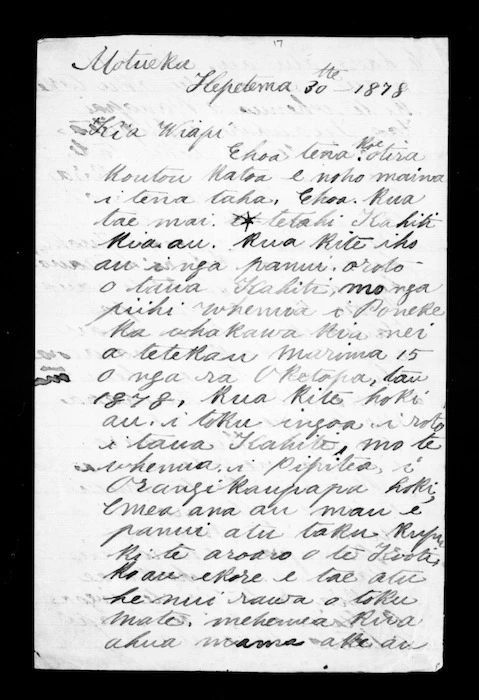 17
Motueka
Hepetema 30th 1878
Kia Wiapi
Ehoa tena Koe otira
Koutou Katoa e noho maina
i tena taha. Ehoa. Kua
tae mai. tetahi Kahiti
Kia. au. Kua Kite iho
au i nga panui. o roto
o taua Kahiti, mo nga
piihi whenua i Poneke
Ka whakawa Kia nei
a tetekau marima 15
o nga ra Oketopa, tau
1878, Kua Kite hoki
au. i toku ingoa i roto
i taua Kahiti, mo te
whenua. i Pipitea, i
Orangikaupapa hoki,
Emea ana au mau e
panui atu taku Kupu
Ki te aroaro o te Kooti,
Koau ekore e tae atu
he nui rawa o toku
mate. mehemea Kua
ahua mama ake au